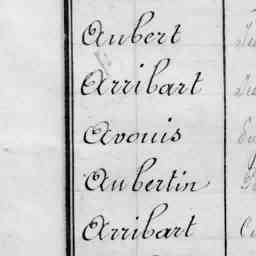 Aubert
Arribart
Avonis
Aubertin
Arribart